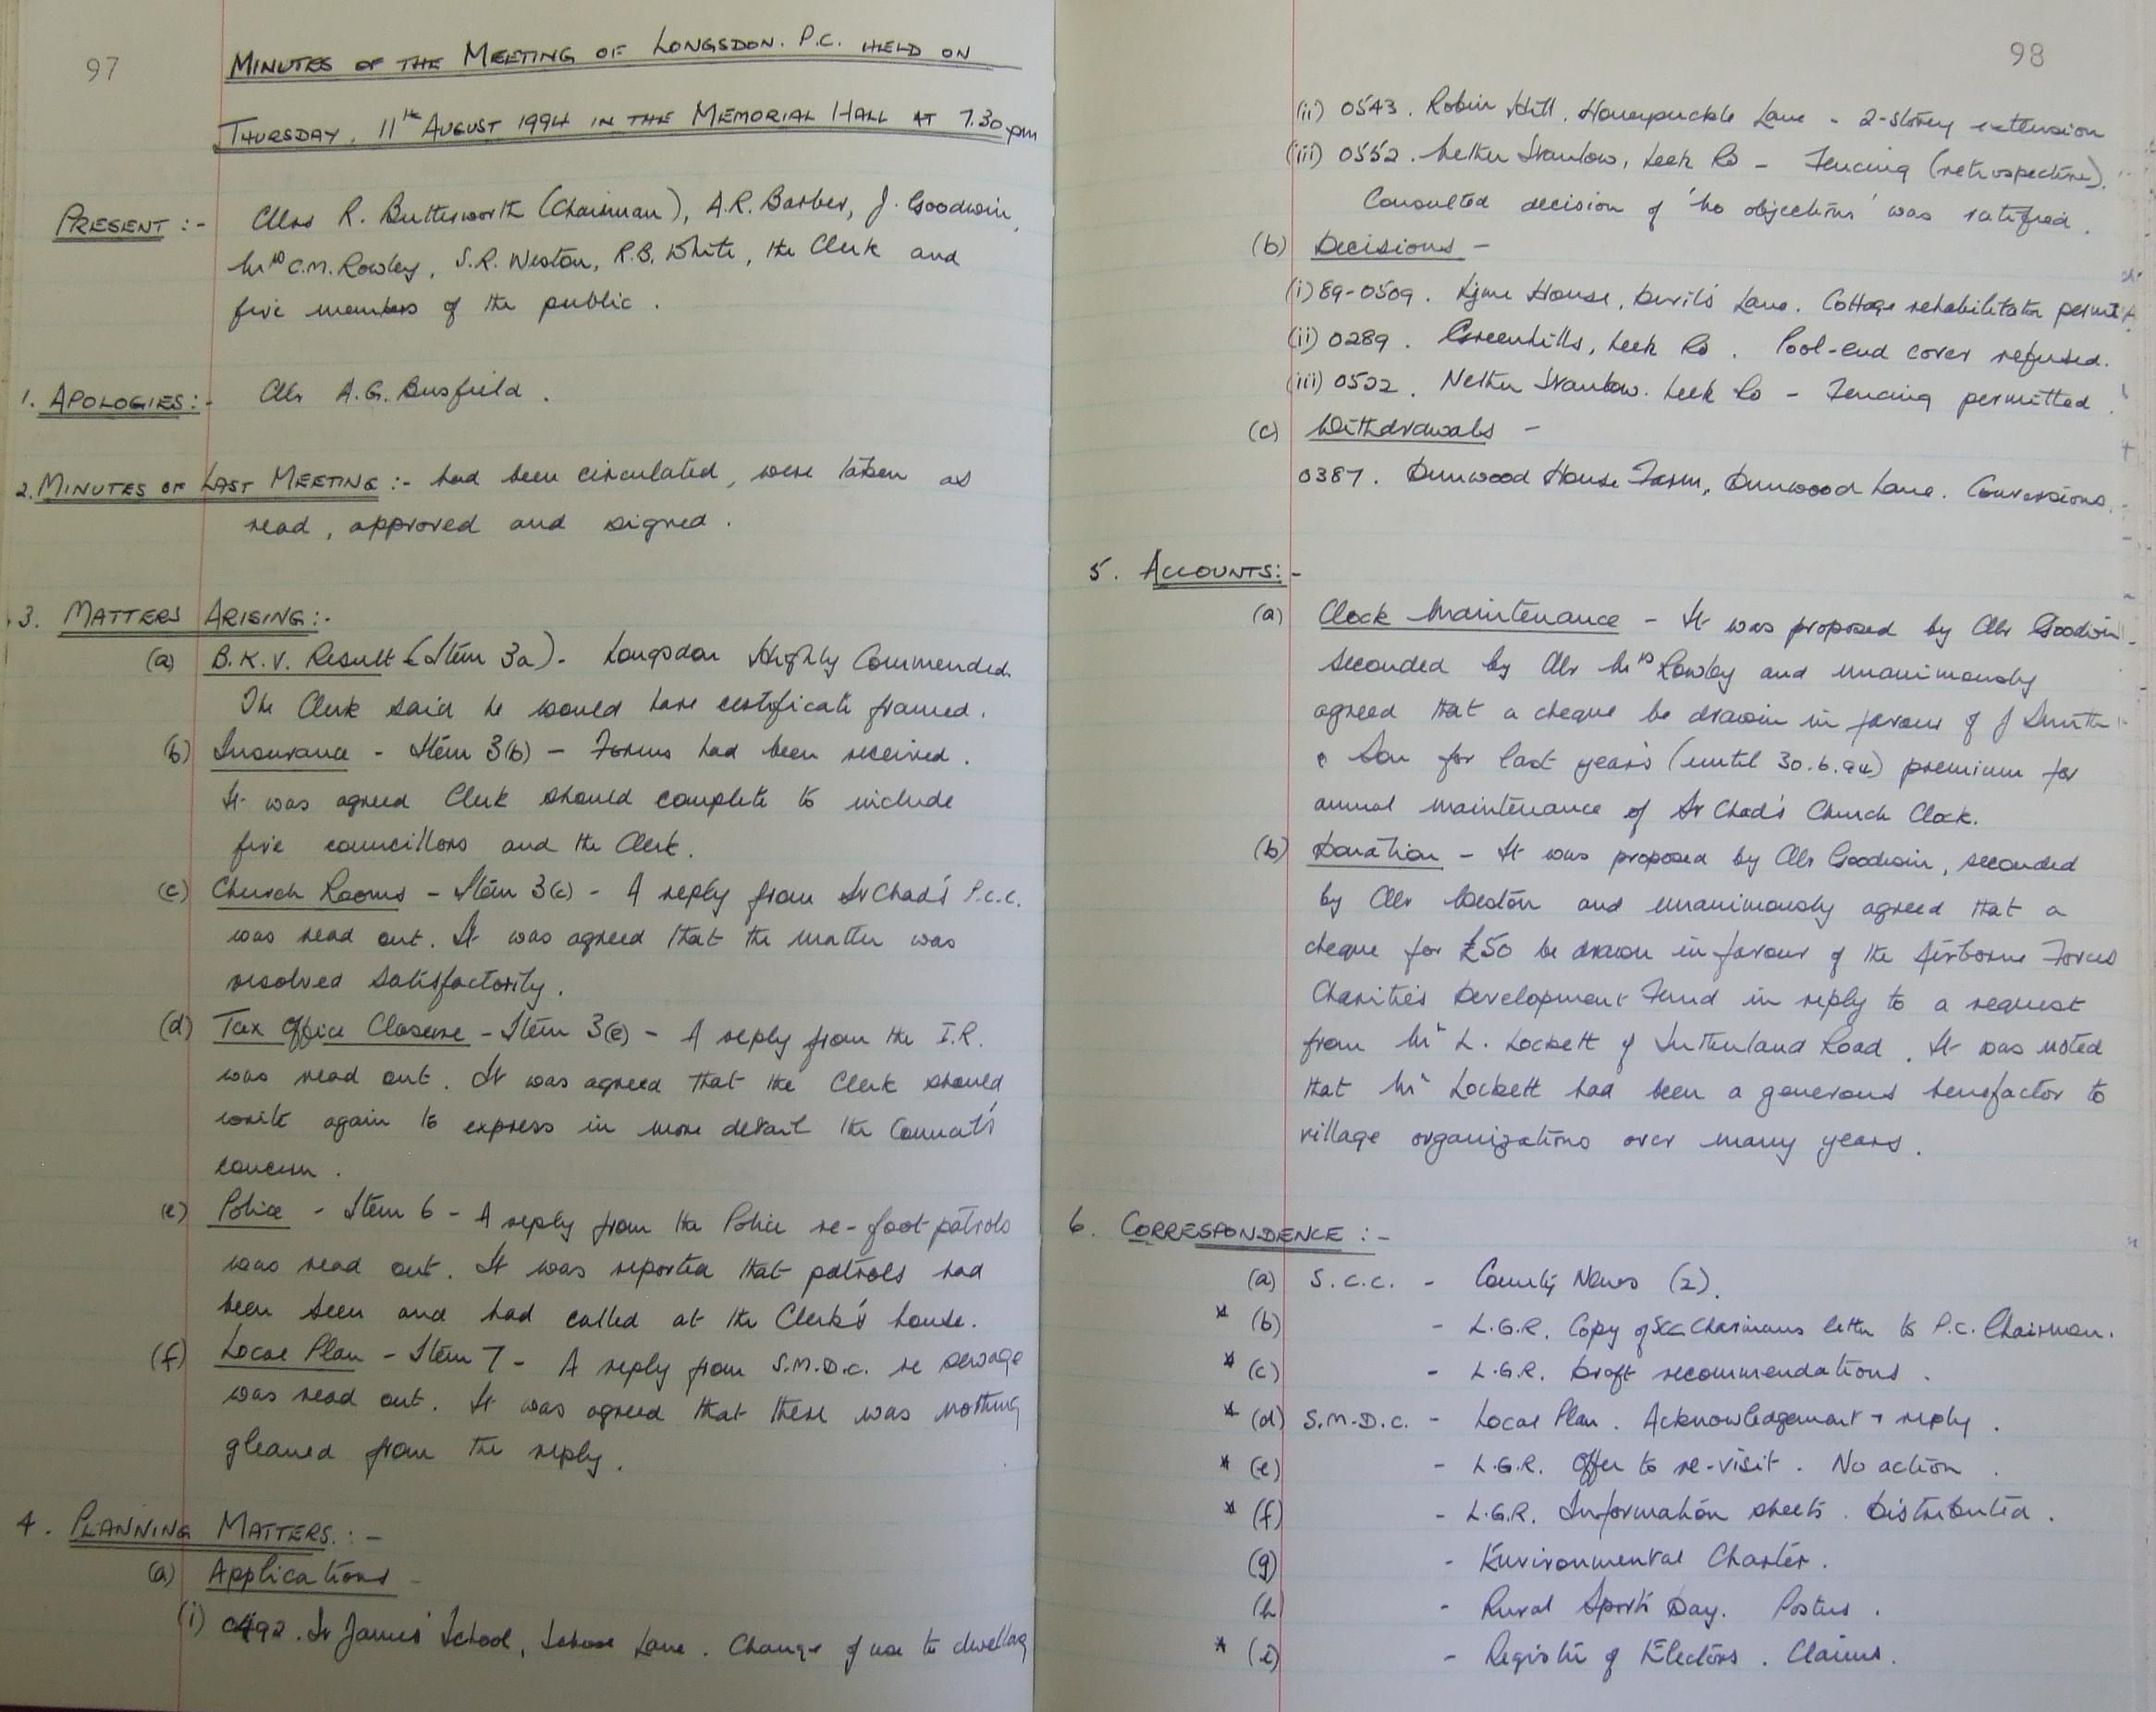 97
MINUTES OF THE MEETING OF LONGSDON. P.C. HELD ON
THURSDAY. 11th AUGUST 1994 IN THE MEMORIAL HALL AT 7.30 pm
PRESENT :- Cllrs R. Butterworth (Chairman), A.R. Barber, J. Goodwin,
Mrs C.M. Rowley, S.R. Weston, R.B. White, the Clerk and
five members of the public.
1. APOLOGIES:- Cllr A.G. Busfield.
2. MINUTES OF LAST MEETING :- had been circulated, were taken as
read, approved and signed.
3. MATTERS ARISING:-
(a) B.K.V. Result (Item 3a) - Longsdon Highly Commended.
The Clerk said he would have certificate framed.
(b) Insurance - Item 3(b) - Forms had been received.
It was agreed Clerk should complete to include
five councillors and the Clerk.
(c) Church Rooms - Item 3(c) - A reply from St Chad's P.C.C.
was read out. It was agreed that the matter was
resolved satisfactorily.
(d) Tax Office Closure - Item 3(e) - A reply from the I.R.
was read out. It was agreed that the Clerk should
write again to express in more detail the Council's
concern.
(e) Police - Item 6 - A reply from the Police re-foot-patrols
was read out. It was reported that patrols had
been seen and had called at the Clerk's house.
(f) Local Plan - Item 7 - A reply from S.M.D.C. re sewage
was read out. It was agreed that there was nothing
gleaned from the reply.
4. PLANNING MATTERS. :-
(a) Applications -
(i) 0492. St James' School, School Lane. Change of use to dwelling
98
(ii) 0543. Robin Hill, Honeysuckle Lane - 2-storey extension
(iii) 0552. Nether Stanlow, Leek Rd - Fencing (retrospective).
Consulted decision of 'no objections' was ratified.
(b) Decisions -
(i) 89-0509. Lyme House, Devil's Lane. Cottage rehabilitation permit
(ii) 0289. Greenhills, Leek Rd. Pool-end cover refused.
(iii) 0522. Nether Stanlow. Leek Rd - Fencing permitted.
(c) Withdrawals -
0387. Dunwood House Farm, Dunwood Lane. Conversions.
5. ACCOUNTS:-
(a) Clock Maintenance - It was proposed by Cllr Goodwin
seconded by Cllr Mrs Rowley and unanimously
agreed that a cheque be drawn in favour of J Smith
& Son for last year's (until 30.6.94) premium for
annual maintenance of St Chad's Church Clock.
(b) Donation - It was proposed by Cllr Goodwin, seconded
by Cllr Weston and unanimously agreed that a
cheque for £50 be drawn in favour of the Airborne Forces
Charities Development Fund in reply to a request
from Mr L. Lockett of Sutherland Road. It was noted
that Mr Lockett had been a generous benefactor to
village organizations over many years.
6. CORRESPONDENCE :-
(a) S.C.C. - County News (2).
* (b) - L.G.R. Copy of SCC Chairmans letter to P.C. Chairman.
* (c) - L.G.R. Draft recommendations.
* (d) S.M.D.C. - Local Plan. Acknowledgement + reply.
* (e) - L.G.R. Offer to re-visit. No action.
* (f) - L.G.R. Information sheets. Distributed.
(g) - Environmental Charter.
(h) - Rural Sports Day. Posters.
* (i) - Register of Electors. Claims.